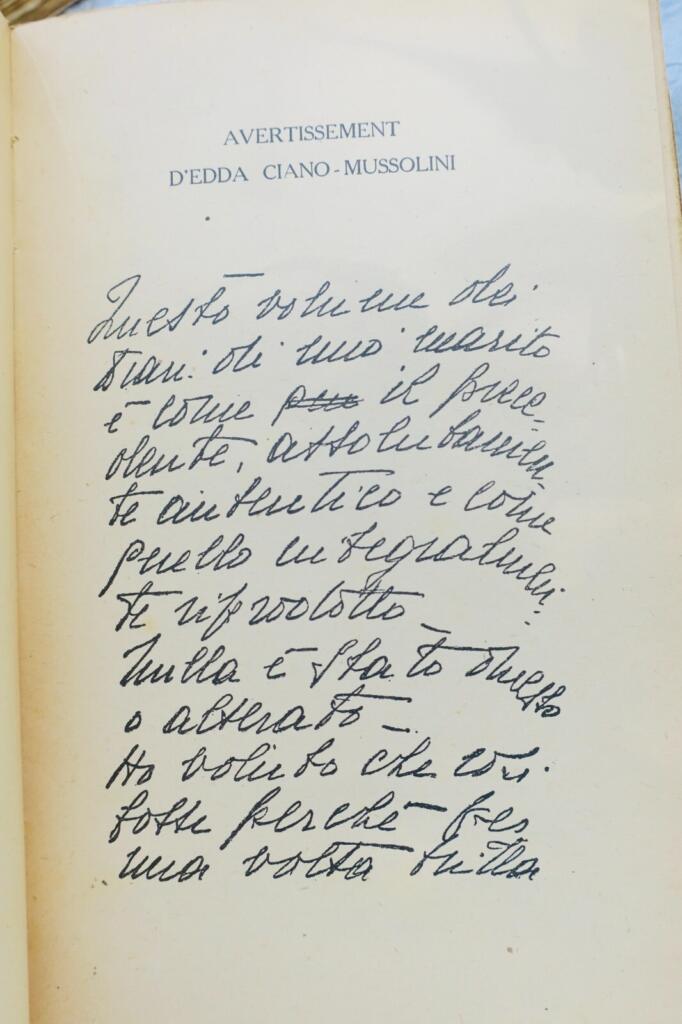 AVERTISSEMENT
D'EDDA CIANO-MUSSOLINI
Questo volume dei
diari di mio marito
è come il prece-
dente, assolutamen-
te autentico e come
quello integralmen-
te riprodotto_
Nulla è stato omesso
o alterato_
Ho voluto che così
fosse perchè per
una volta